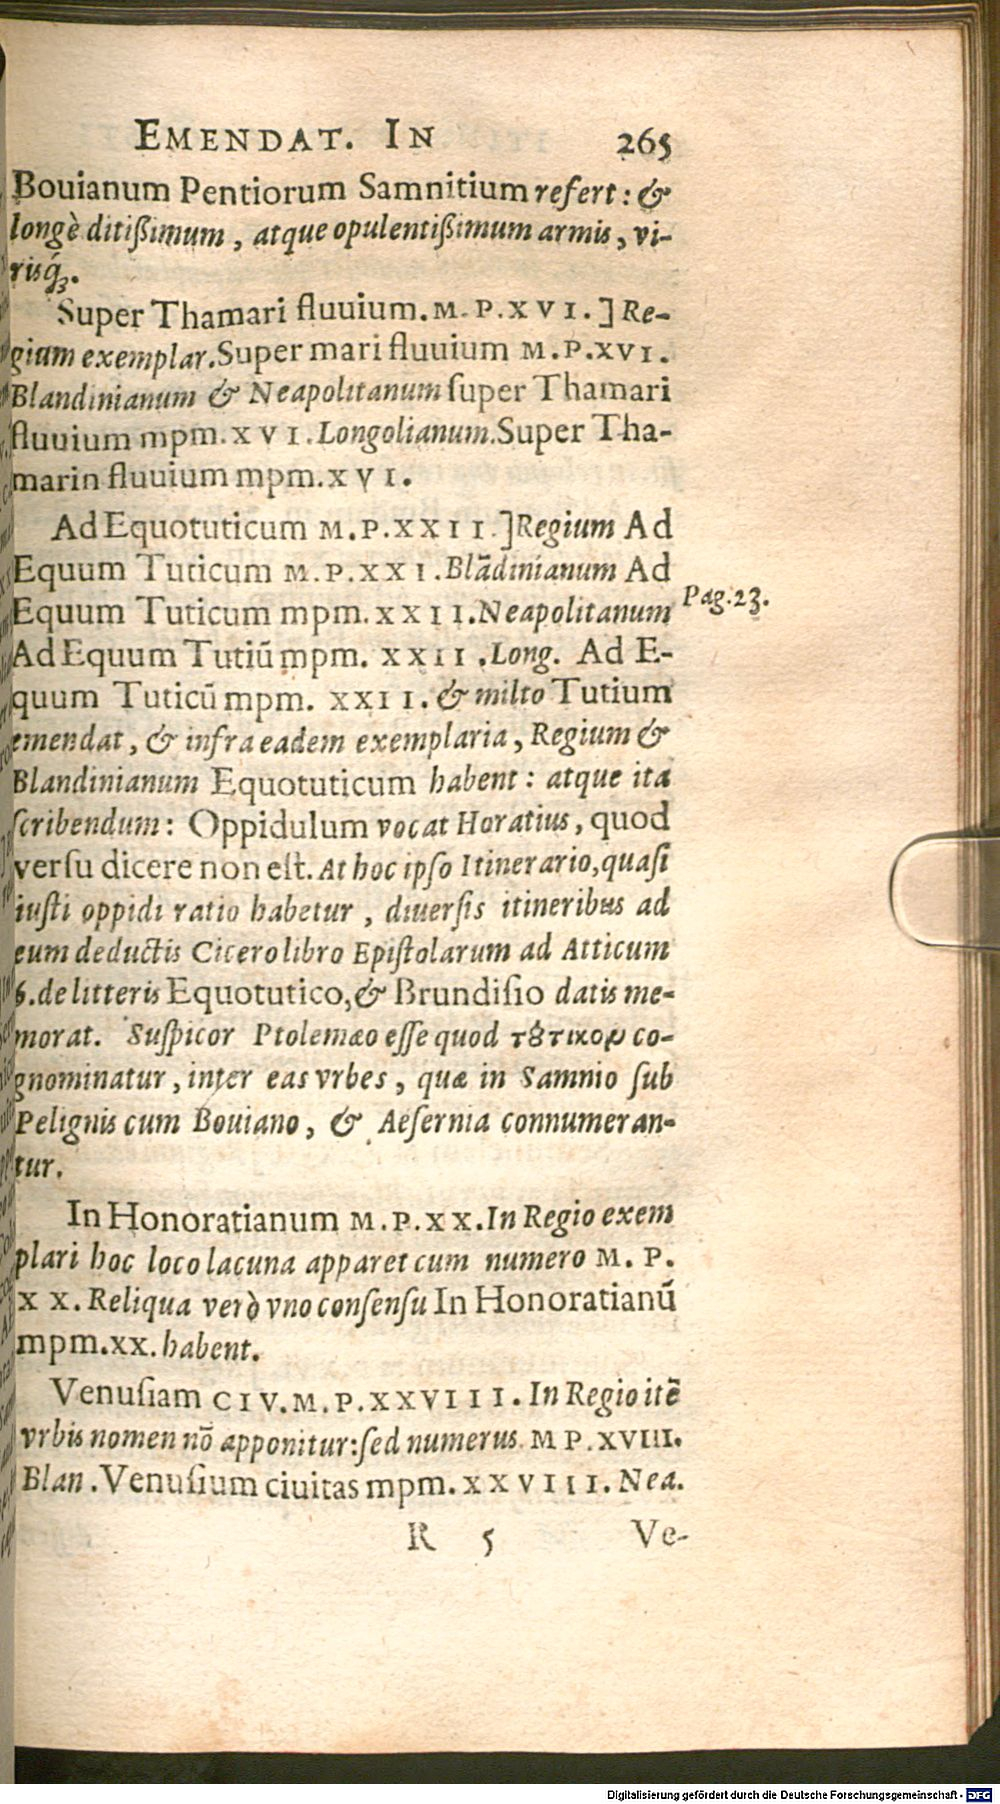 EMENDAT. IN 265
Bouianum Pentiorum Samnitium refert: &
longè ditißimum, atque opulentißimum armis, vi-
risq́ꝫ.
Super Thamari fluuium. M. P. XVI.] Re-
gium exemplar. Super mari fluuium M. P. XVI.
Blandinianum & Neapolitanum super Thamari
fluuium mpm. XVI. Longolianum. Super Tha-
marin fluuium mpm. XVI.
Ad Equotuticum M. P. XXII.] Regium Ad
Equum Tuticum M. P. XXI. Blādinianum Ad
Equum Tuticum mpm. XXII. Neapolitanum
Pag. 23.
Ad Equum Tutiū mpm. XXII. Long. Ad E-
quum Tuticū mpm. XXII. & milto Tutium
emendat, & infra eadem exemplaria, Regium &
Blandinianum Equotuticum habent: atque ita
scribendum: Oppidulum vocat Horatius, quod
versu dicere non est. At hoc ipso Itinerario, quasi
iusti oppidi ratio habetur, diuersis itineribus ad
eum deductis Cicero libro Epistolarum ad Atticum
6. de litteris Equotutico, & Brundisio datis me-
morat. Suspicor Ptolemæo esse quod τȣ́τικον co-
gnominatur, inter eas vrbes, quæ in Samnio sub
Pelignis cum Bouiano, & Aesernia connumeran-
tur.
In Honoratianum M. P. XX. In Regio exem
plari hoc loco lacuna apparet cum numero M. P.
XX. Reliqua verò vno consensu In Honoratianū
mpm. xx. habent.
Venusiam CIV. M. P. XXVIII. In Regio itē
vrbis nomen nō apponitur: sed numerus. M P. XVIII.
Blan. Venusium ciuitas mpm. XXVIII. Nea.
R 5 Ve-
Digitalisierung gefördert durch die Deutsche Forschungsgemeinschaft - DFG